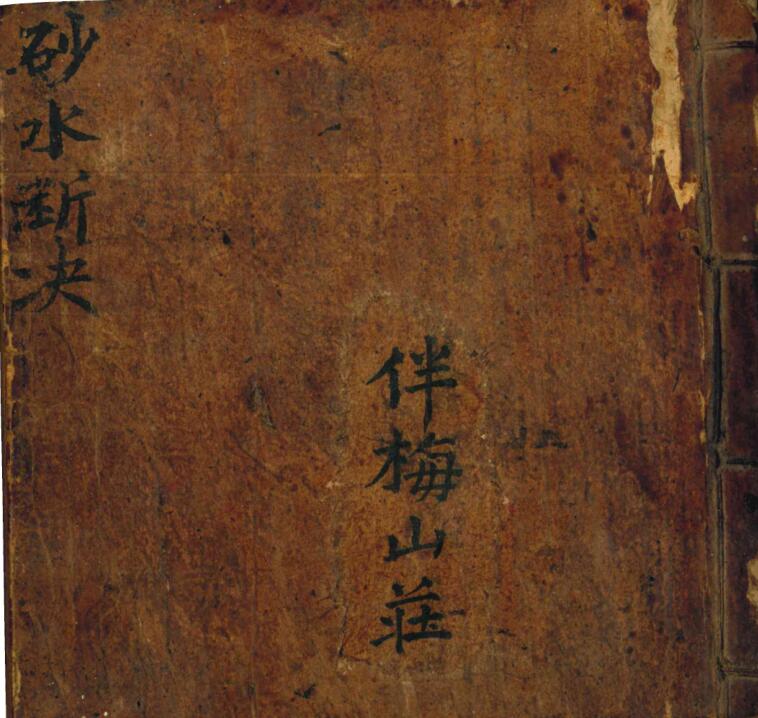 伴梅山莊
砂水斷决